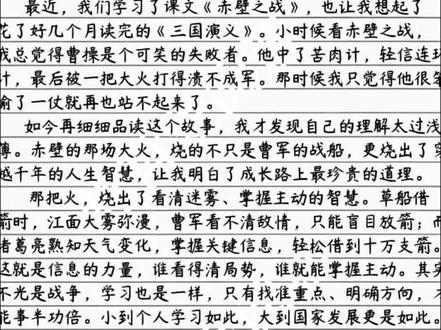 最近，我们学习了课文《赤壁之战》，也让我想起了
花了好几个月读完的《三国演义》。小时候看赤壁之战，
我总觉得曹操是个可笑的失败者。他中了苦肉计，轻信连环
计，最后被一把大火打得溃不成军。那时候我只觉得他很笨
输了一仗就再也站不起来了。
如今再细细品读这个故事，我才发现自己的理解太过浅
薄。赤壁的那场大火，烧的不只是曹军的战船，更烧出了穿
越千年的人生智慧，让我明白了成长路上最珍贵的道理。
那把火，烧出了看清迷雾、掌握主动的智慧。草船借
箭时，江面大雾弥漫，曹军看不清敌情，只能盲目放箭；而
诸葛亮熟知天气变化，掌握关键信息，轻松借到十万支箭。
这就是信息的力量，谁看得清局势，谁就能掌握主动。其实
不光是战争，学习也是一样，只有找准重点、明确方向，才
能事半功倍。小到个人学习如此，大到国家发展更是如此。